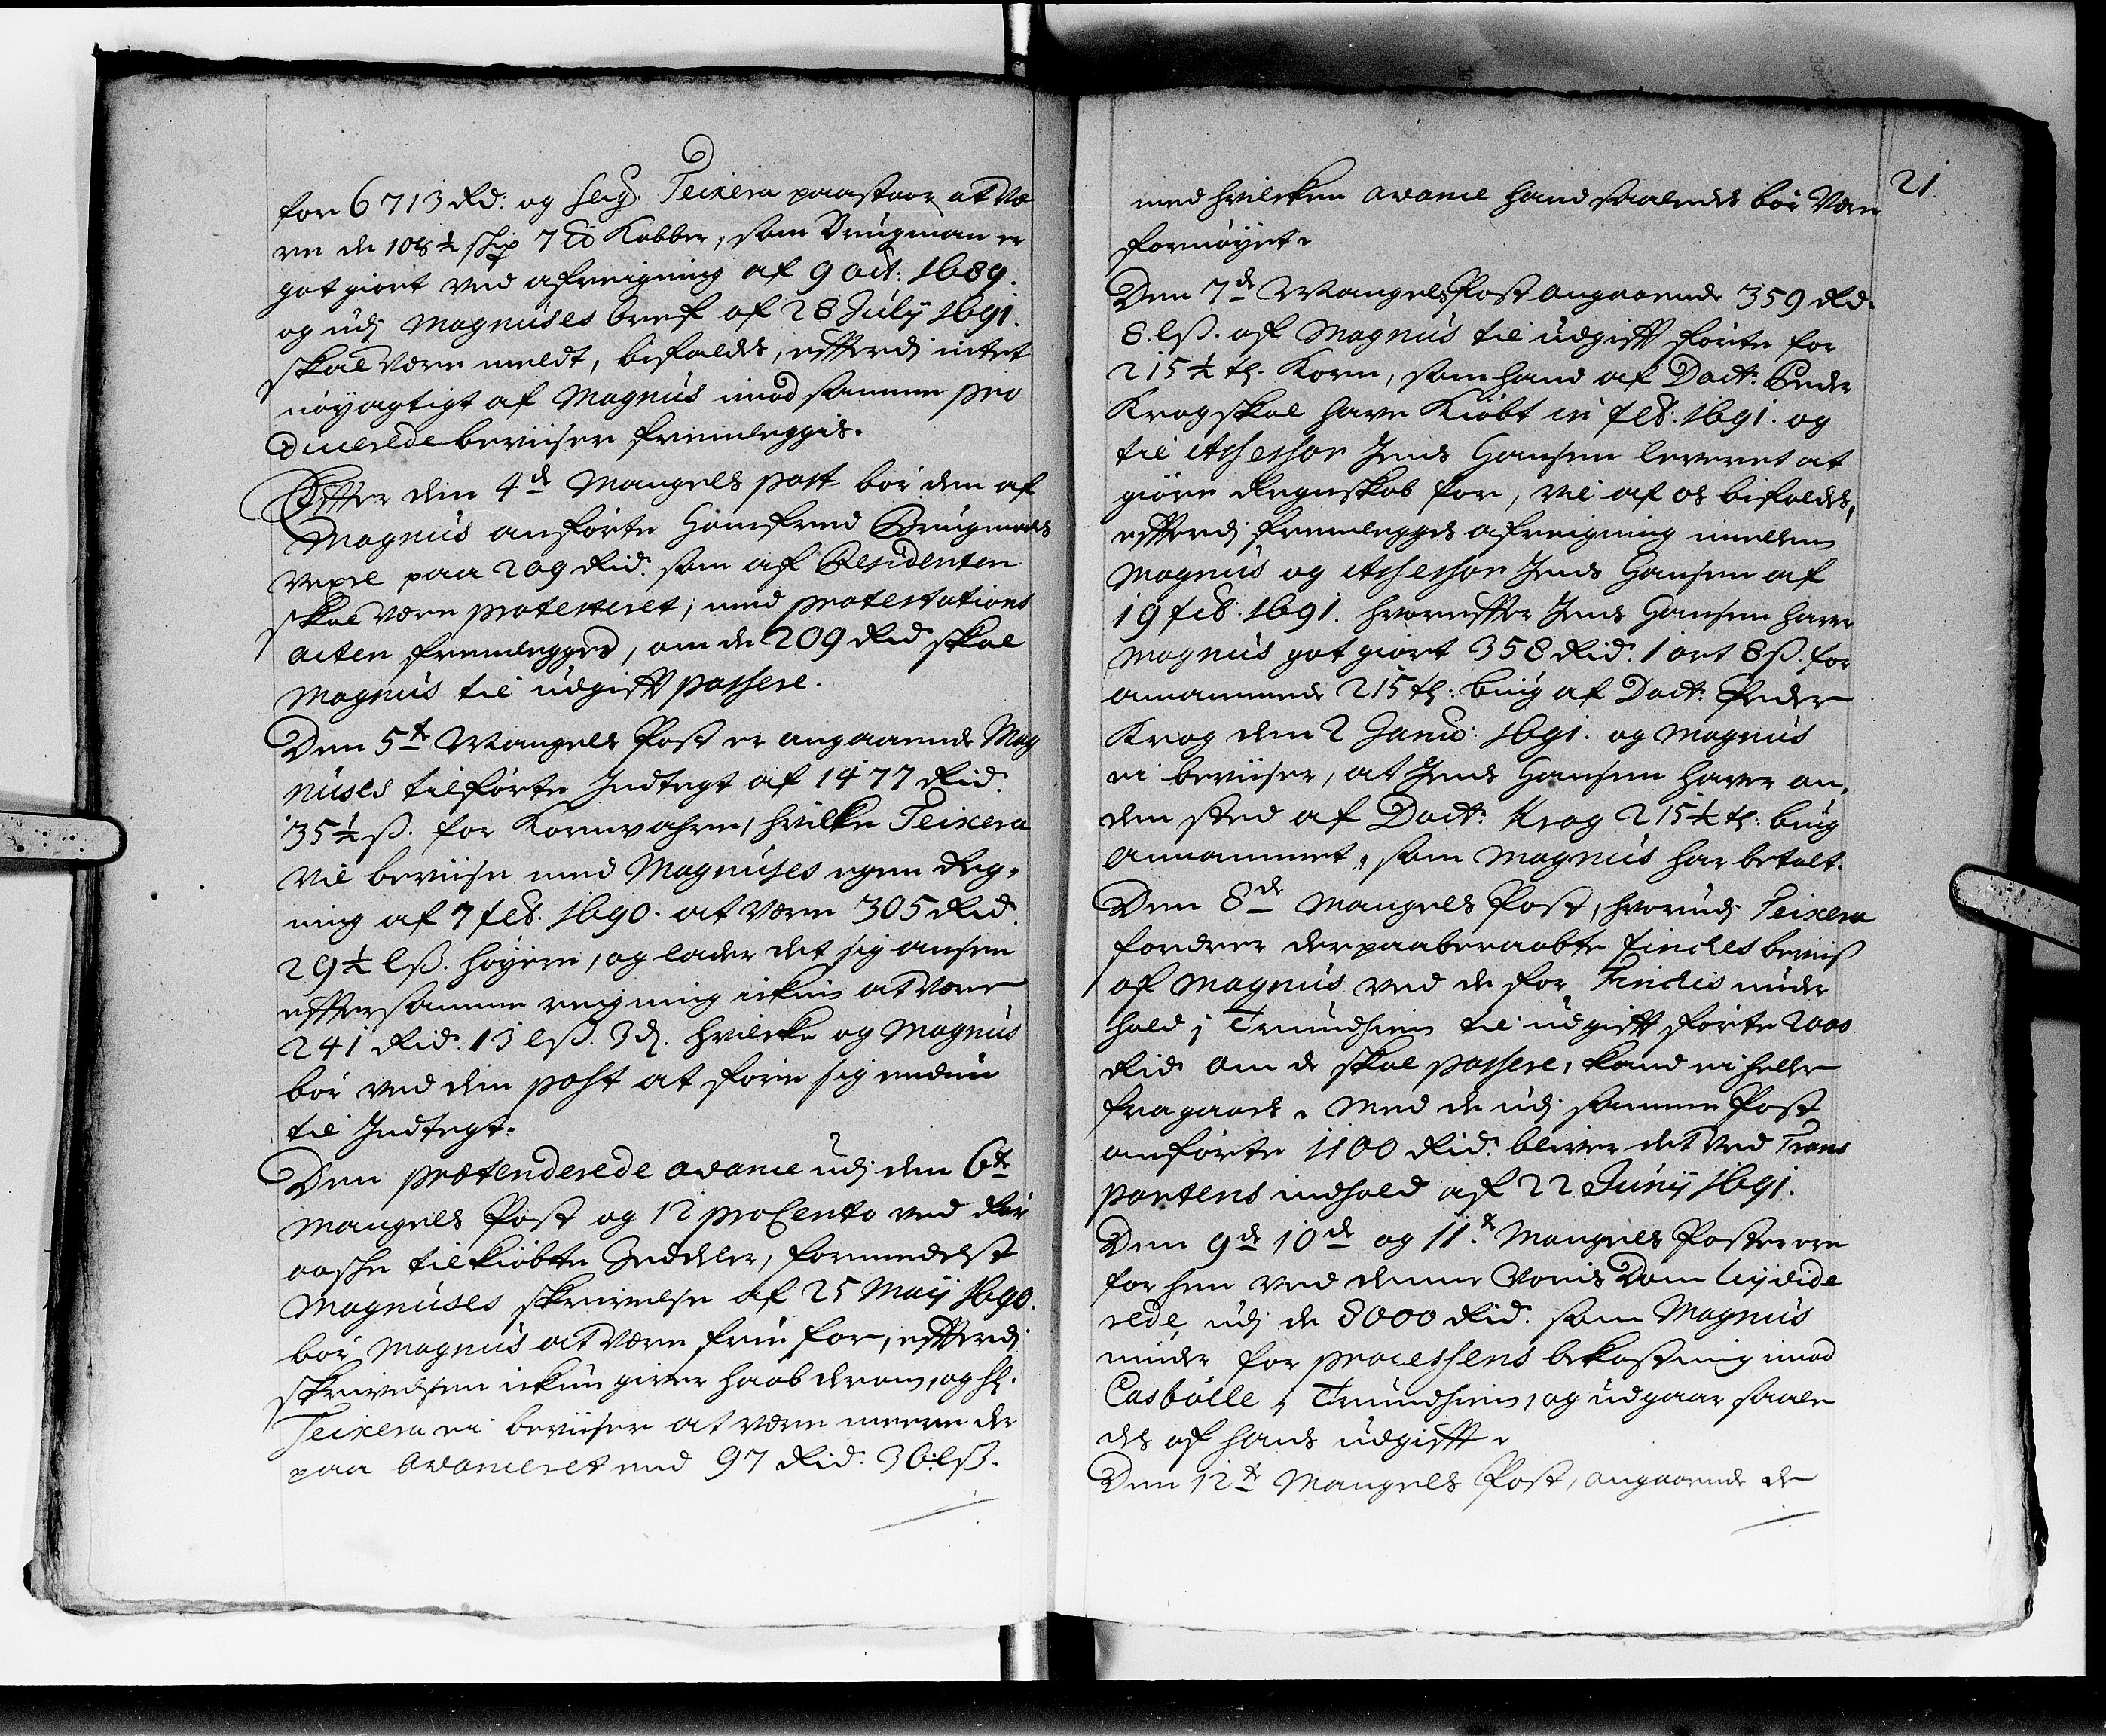 for 6713 Rd: og Seig. Teixera paastaar at væ
re de 108½ skip 7 ℔ Kobber, som Brugman er
got giort ved afreigning af 9 oct: 1689.
og udj Magnuses bref af 28 July 1691.
skal være meldt, bifaldes, efferdj intet
nöyagtigt af Magnus imod samme pro
ducerede beviiser fremleggis.
Effter den 4de Mangels post bör den af
Magnus anförte Hansfred Brugmands
vexel paa 209 Rd. som af Residenten
skal være protesteret, med protestations
acten fremlegges, om de 209 Rd. skal
Magnus til udgifft passere.
Den 5te Mangels Post er angaaende Mag
nuses tilförte Indtegt af 1477 Rd.
35½ ß. for Kornvahre, hvilke Teixera
vil beviise med Magnuses egen Reg-
ning af 7 feb. 1690. at være 305 Rd.
29½ lß. höyere, og lader det sig ansee
effter samme reigning ickun at være
241 Rd. 13 lß. 3 d. hvilcke og Magnus
bör ved den post at före sig endnu
til Indtegt.
Den prætenderede avance udj den 6te
Mangels Post og 12 proCento ved Rör
aasse tilkiöbte Sedeler, formedelst
Magnuses skrivelse af 25 Maij 1690.
bör Magnus at være frie for, efferdj
skrivelsen ickun giver haab derom, og Hr.
Teixera ei beviiser at være meere der
paa avanceret end 97 Rd: 36 lß.
21.
med hvilcken avance hand saaledes bör være
fornöyet.
Den 7de Mangels Post angaaende 359 Rd.
8. lß. af Magnus til udgifft förte for
215½ td. Korn, som hand af Doct: Peder
Krog skal have Kiöbt in feb: 1691. og
til Assessor Jens Hansen leveret at
giöre Regnskab for, vil af os bifaldes,
efferdj fremlegges afreigning imellem
Magnus og Assessor Jens Hansen af
19 feb. 1691. hvoreffter Jens Hansen haver
Magnus got giort 358 Rd. 1 ort 8 ß. for
annammede 215 td: biug af Doct: Peder
Krog den 2 Janu: 1691. og Magnus
ei beviiser, at Jens Hansen haver an-
den sted af Doct: Krog 215½ td. biug
annammet, som Magnus har betalt.
Den 8de Mangels Post, hvorudj Teixera
fordrer der paaberaabte finckes beviis
af Magnus ved de for Finckis under
hold i Trundhiem til udgifft förte 2000
Rd. om de skal passere, kand ei heller
fragaaes. Med de udj samme Post
anförte 1100 Rd. bliver det ved Trans
portens indhold af 22 Junij 1691.
Den 9de 10de og 11te Mangels Poster ere
for hen ved denne Voris Dom liqvide
rede udj de 8000 Rd. som Magnus
nüder for processens bekostning imod
Casbölle i Trundhiem, og udgaar saale
des af hans udgifft.
Den 12te Mangels Post, angaaende de